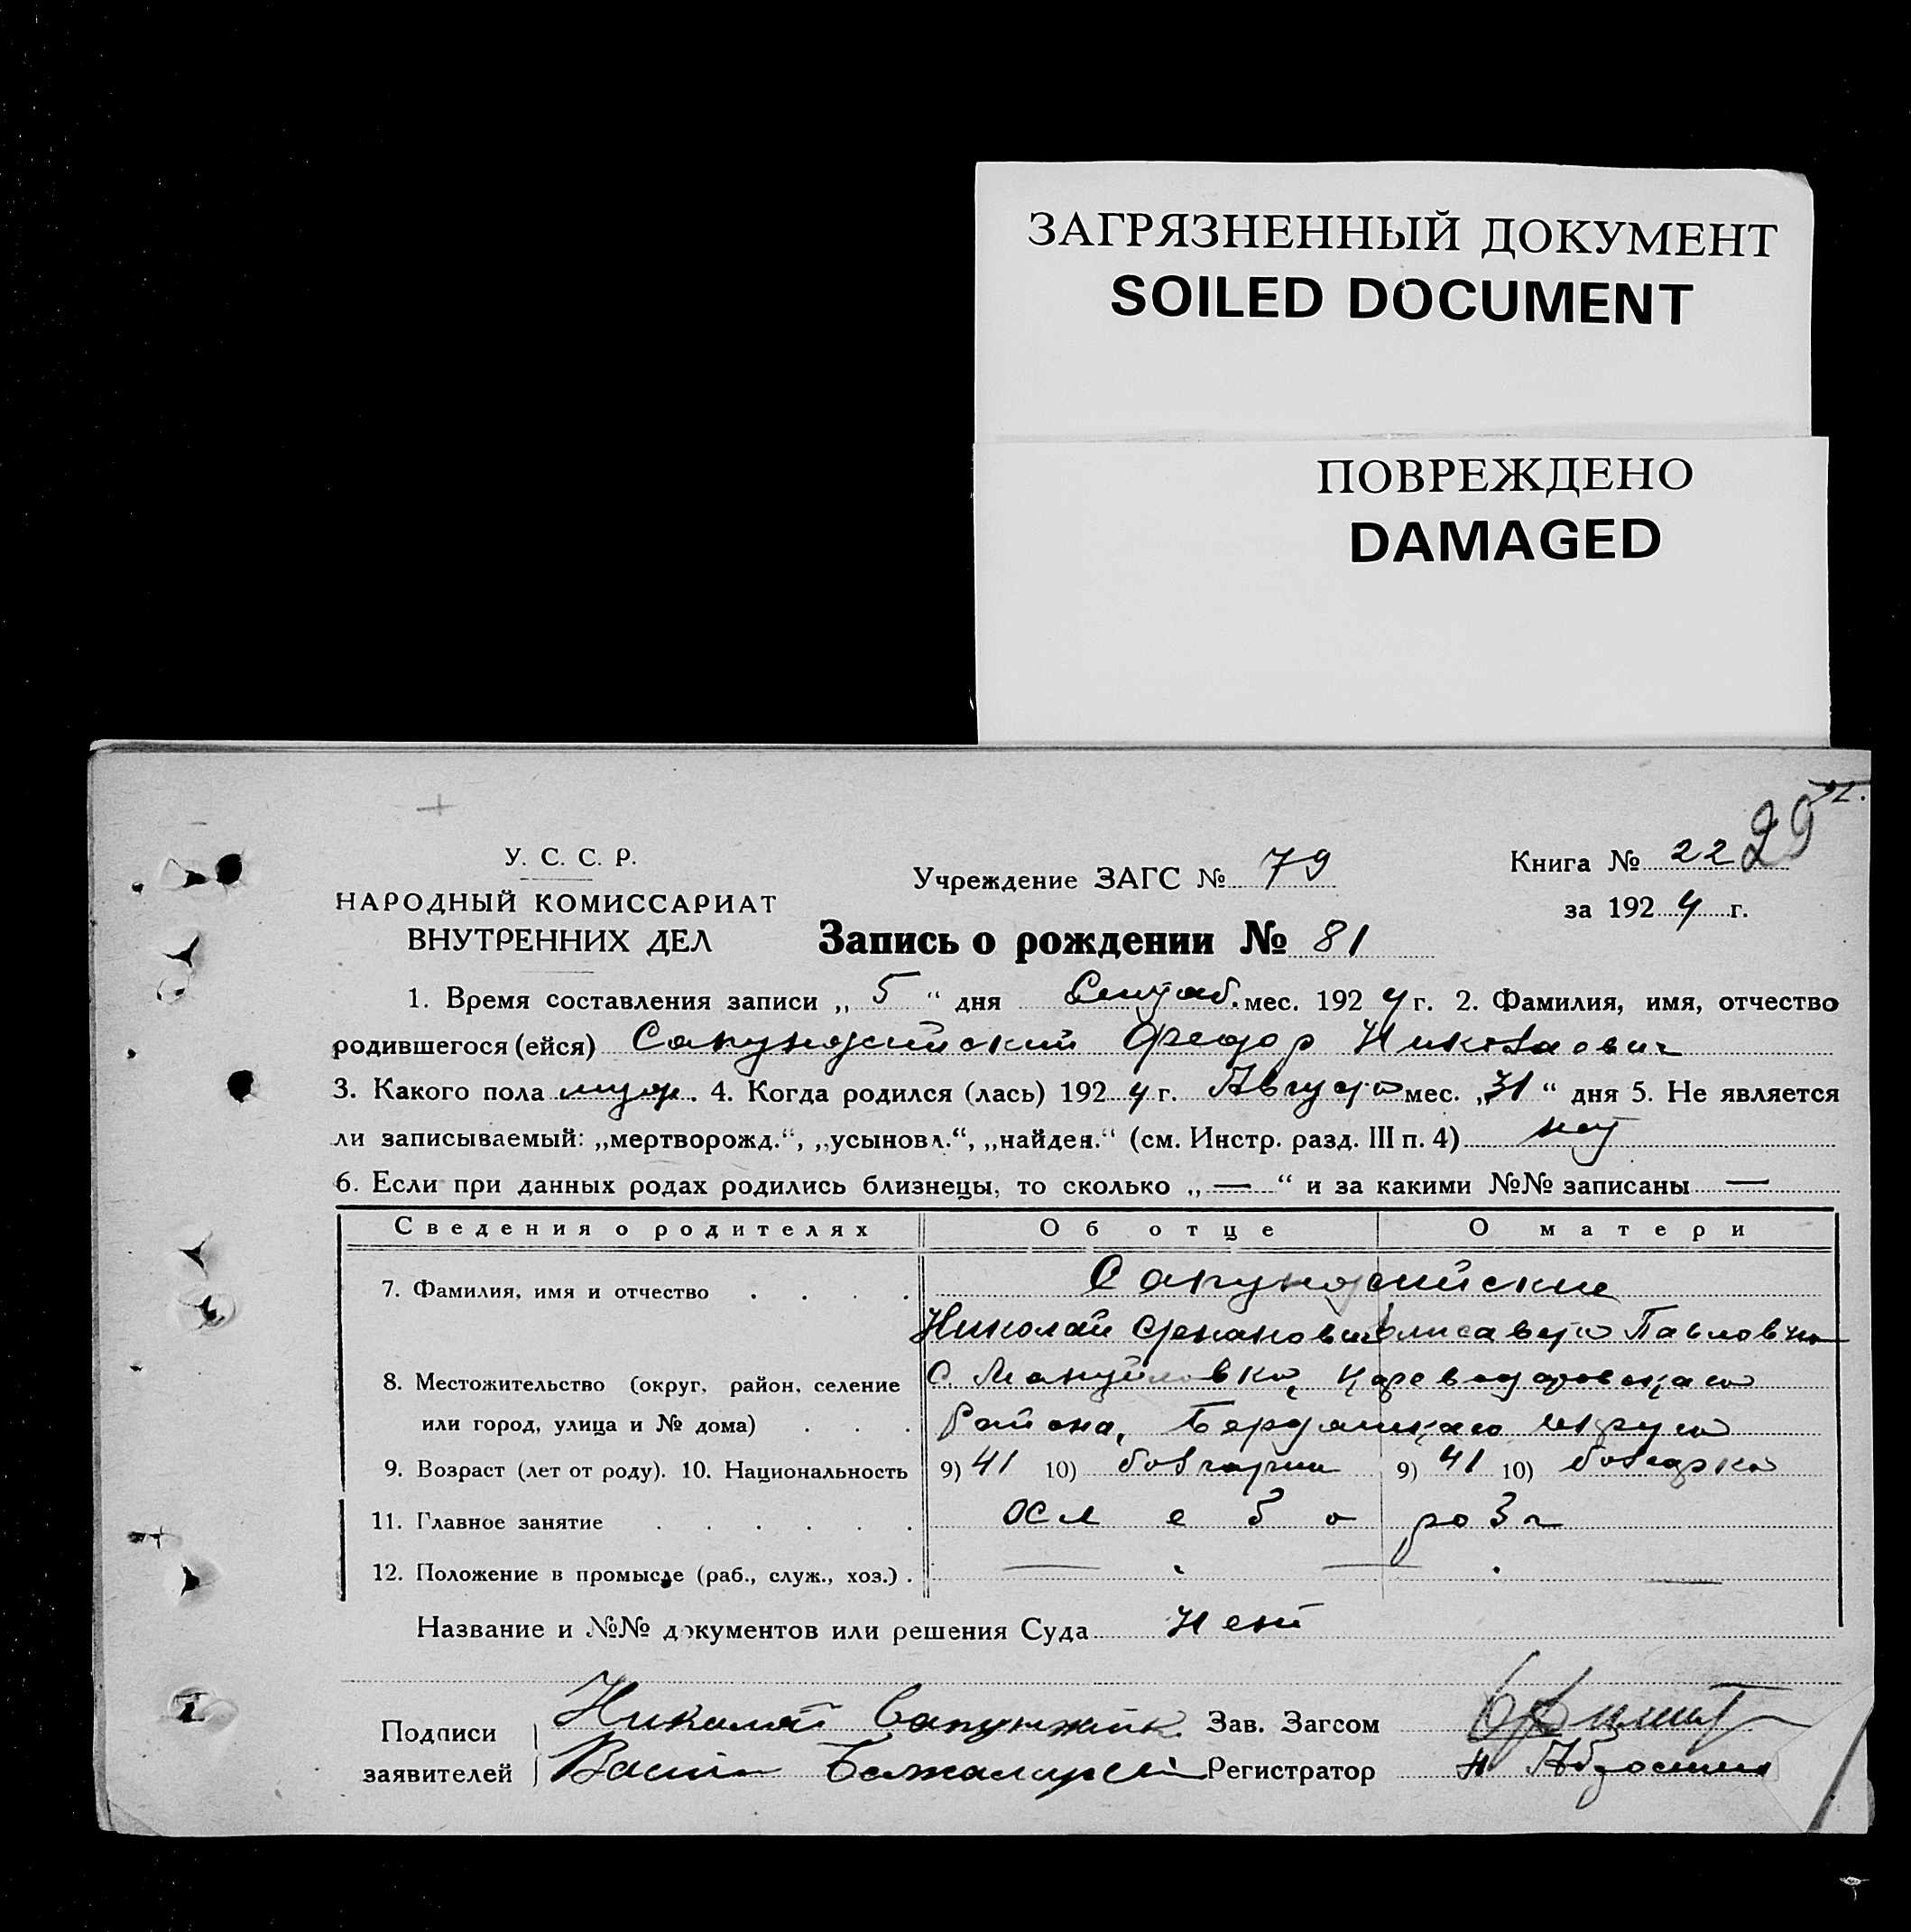 ЗАГРЯЗНЕННЫЙ ДОКУМЕНТ
SOILED DOCUMENT
ПОВРЕЖДЕНО
DAMAGED
29
У. С. С. Р.
НАРОДНЫЙ КОМИССАРИАТ
ВНУТРЕННИХ ДЕЛ
Учреждение ЗАГС № 79
Книга № 22
за 1924 г.
Запись о рождении № 81
1. Время составления записи „ 5 “ дня Сентяб. мес. 1924 г. 2. Фамилия, имя, отчество
родившегося (ейся) Сапунджийский Федор Николаевич
3. Какого пола муж. 4. Когда родился (лась) 1924 г. Августа мес. „31“ дня 5. Не является
ли записываемый: „мертворожд.“, „усыновл.“, „найден.“ (см. Инстр. разд. III п. 4) нет
6. Если при данных родах родились близнецы, то сколько „ — “ и за какими №№ записаны —
Сведения о родителях Об отце О матери
7. Фамилия, имя и отчество . . . . Сапунджийские
Николай Степанович Елисавета Павловна
8. Местожительство (округ, район, селение С. Мануйловка, Цареводаровскаго
или город, улица и № дома) . . . Района, Бердянскаго округа
9. Возраст (лет от роду). 10. Национальность 9) 41 10) болгарин 9) 41 10) болгарка
11. Главное занятие . . . . . . хлебороб
12. Положение в промысле (раб., служ., хоз.) . — " — " —
Название и №№ документов или решения Суда Нет
Подписи заявителей
Николай Сапунжийск.
Зав. Загсом
Регистратор